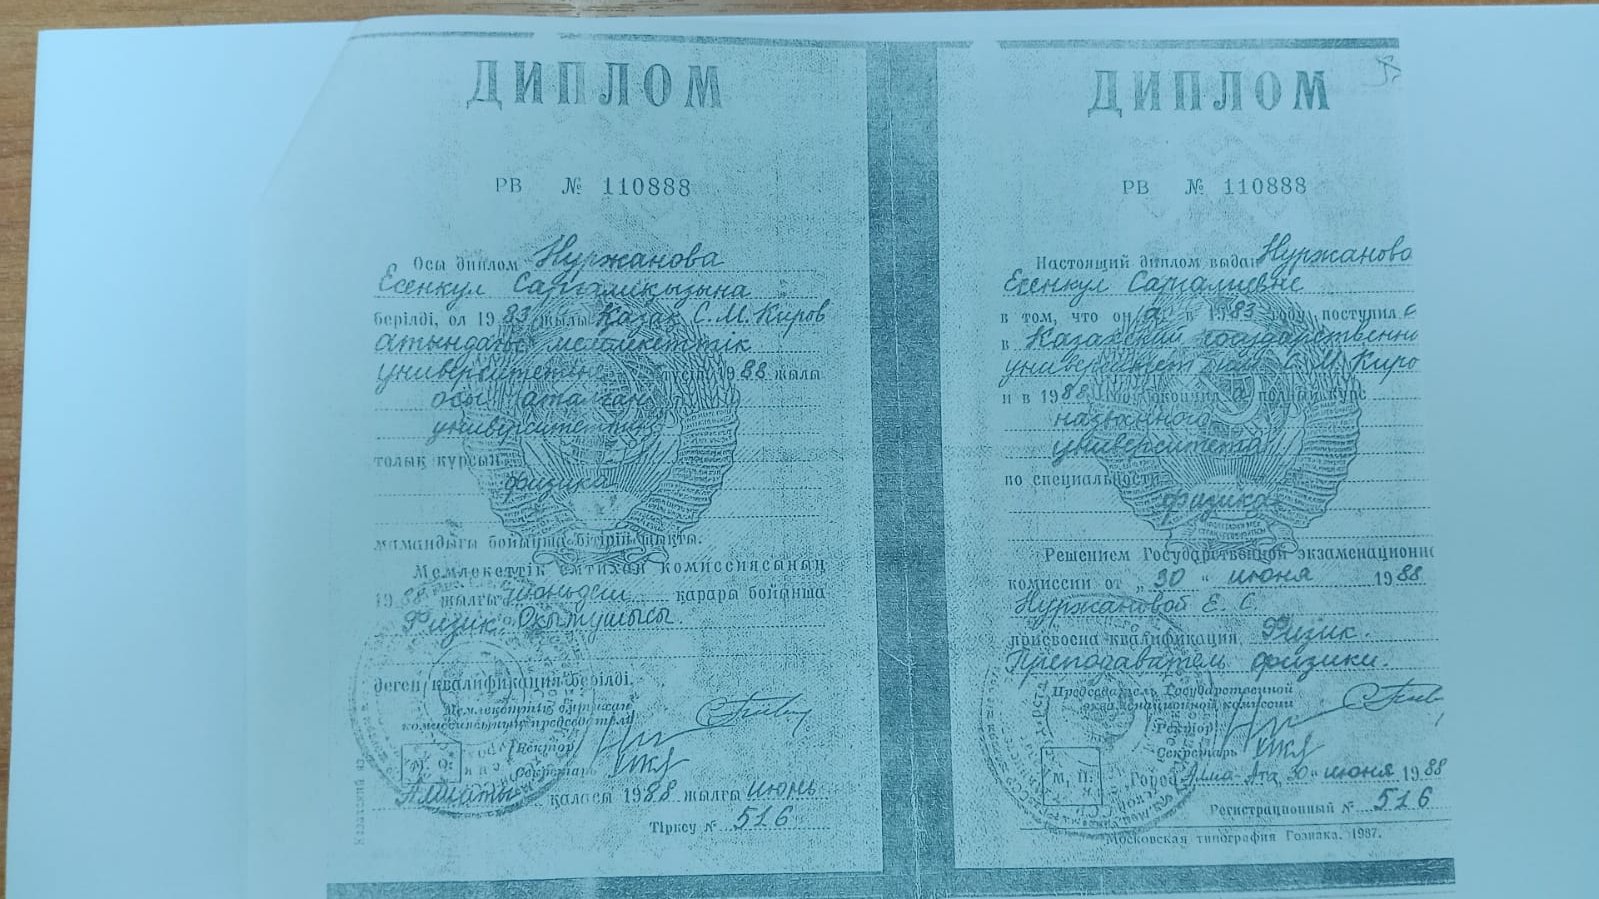 ДИПЛОМ
РВ № 110888
Осы диплом Нуржанова
Есенкул Сарғалиқызына
берілді, ол 1983 жылы Қазақ С. М. Киров
атындағы мемлекеттік
университетіне түсіп 1988 жылы
осы аталған
университеттің
толық курсын
физика
мамандығы бойынша бітіріп шықты.
Мемлекеттік емтихан комиссиясының
1988 жылғы қарары бойынша
Физик. Оқытушысы.
деген квалификация берілді.
Мемлекеттік емтихан
комиссиясының председателі
Ректор
Секретарь
М. О.
Алматы қаласы 1988 жылғы июнь
Тіркеу № 516
ДИПЛОМ
РВ № 110888
Настоящий диплом выдан Нуржановой
Есенкул Саргалиевне
в том, что он а в 1983 году поступил а
в Казахский государственный
университет им. С. М. Киро
и в 1988 году окончил а полный курс
названного
университета
по специальности
физика
Решением Государственной экзаменационн
комиссии от „30“ июня 1988
Нуржановой Е. С.
присвоена квалификация Физик.
Преподаватель физики.
Председатель Государственной
экзаменационной комиссии
Ректор
Секретарь
М. П.
Город Алма-Ата, 30 „ июня 1988
Регистрационный № 516
Московская типография Гознака. 1987.